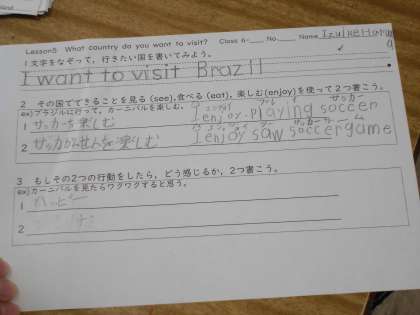 Lesson5 What country do you want to visit? Class 6- No. Name
1 文字をなぞって，行きたい国を書いてみよう。
I want to visit Brazil
2 その国でできることを見る (see),食べる (eat), 楽しむ(enjoy)を使って２つ書こう。
ex)ブラジルに行って，カーニバルを楽しむ。
1 サッカーを楽しむ I enjoy playing soccer
2 を楽しむ I enjoy saw soccer game
3 もしその2つの行動をしたら，どう感じるか，2つ書こう。
ex)カーニバルを見たらワクワクすると思う。
1 ハッピー
2